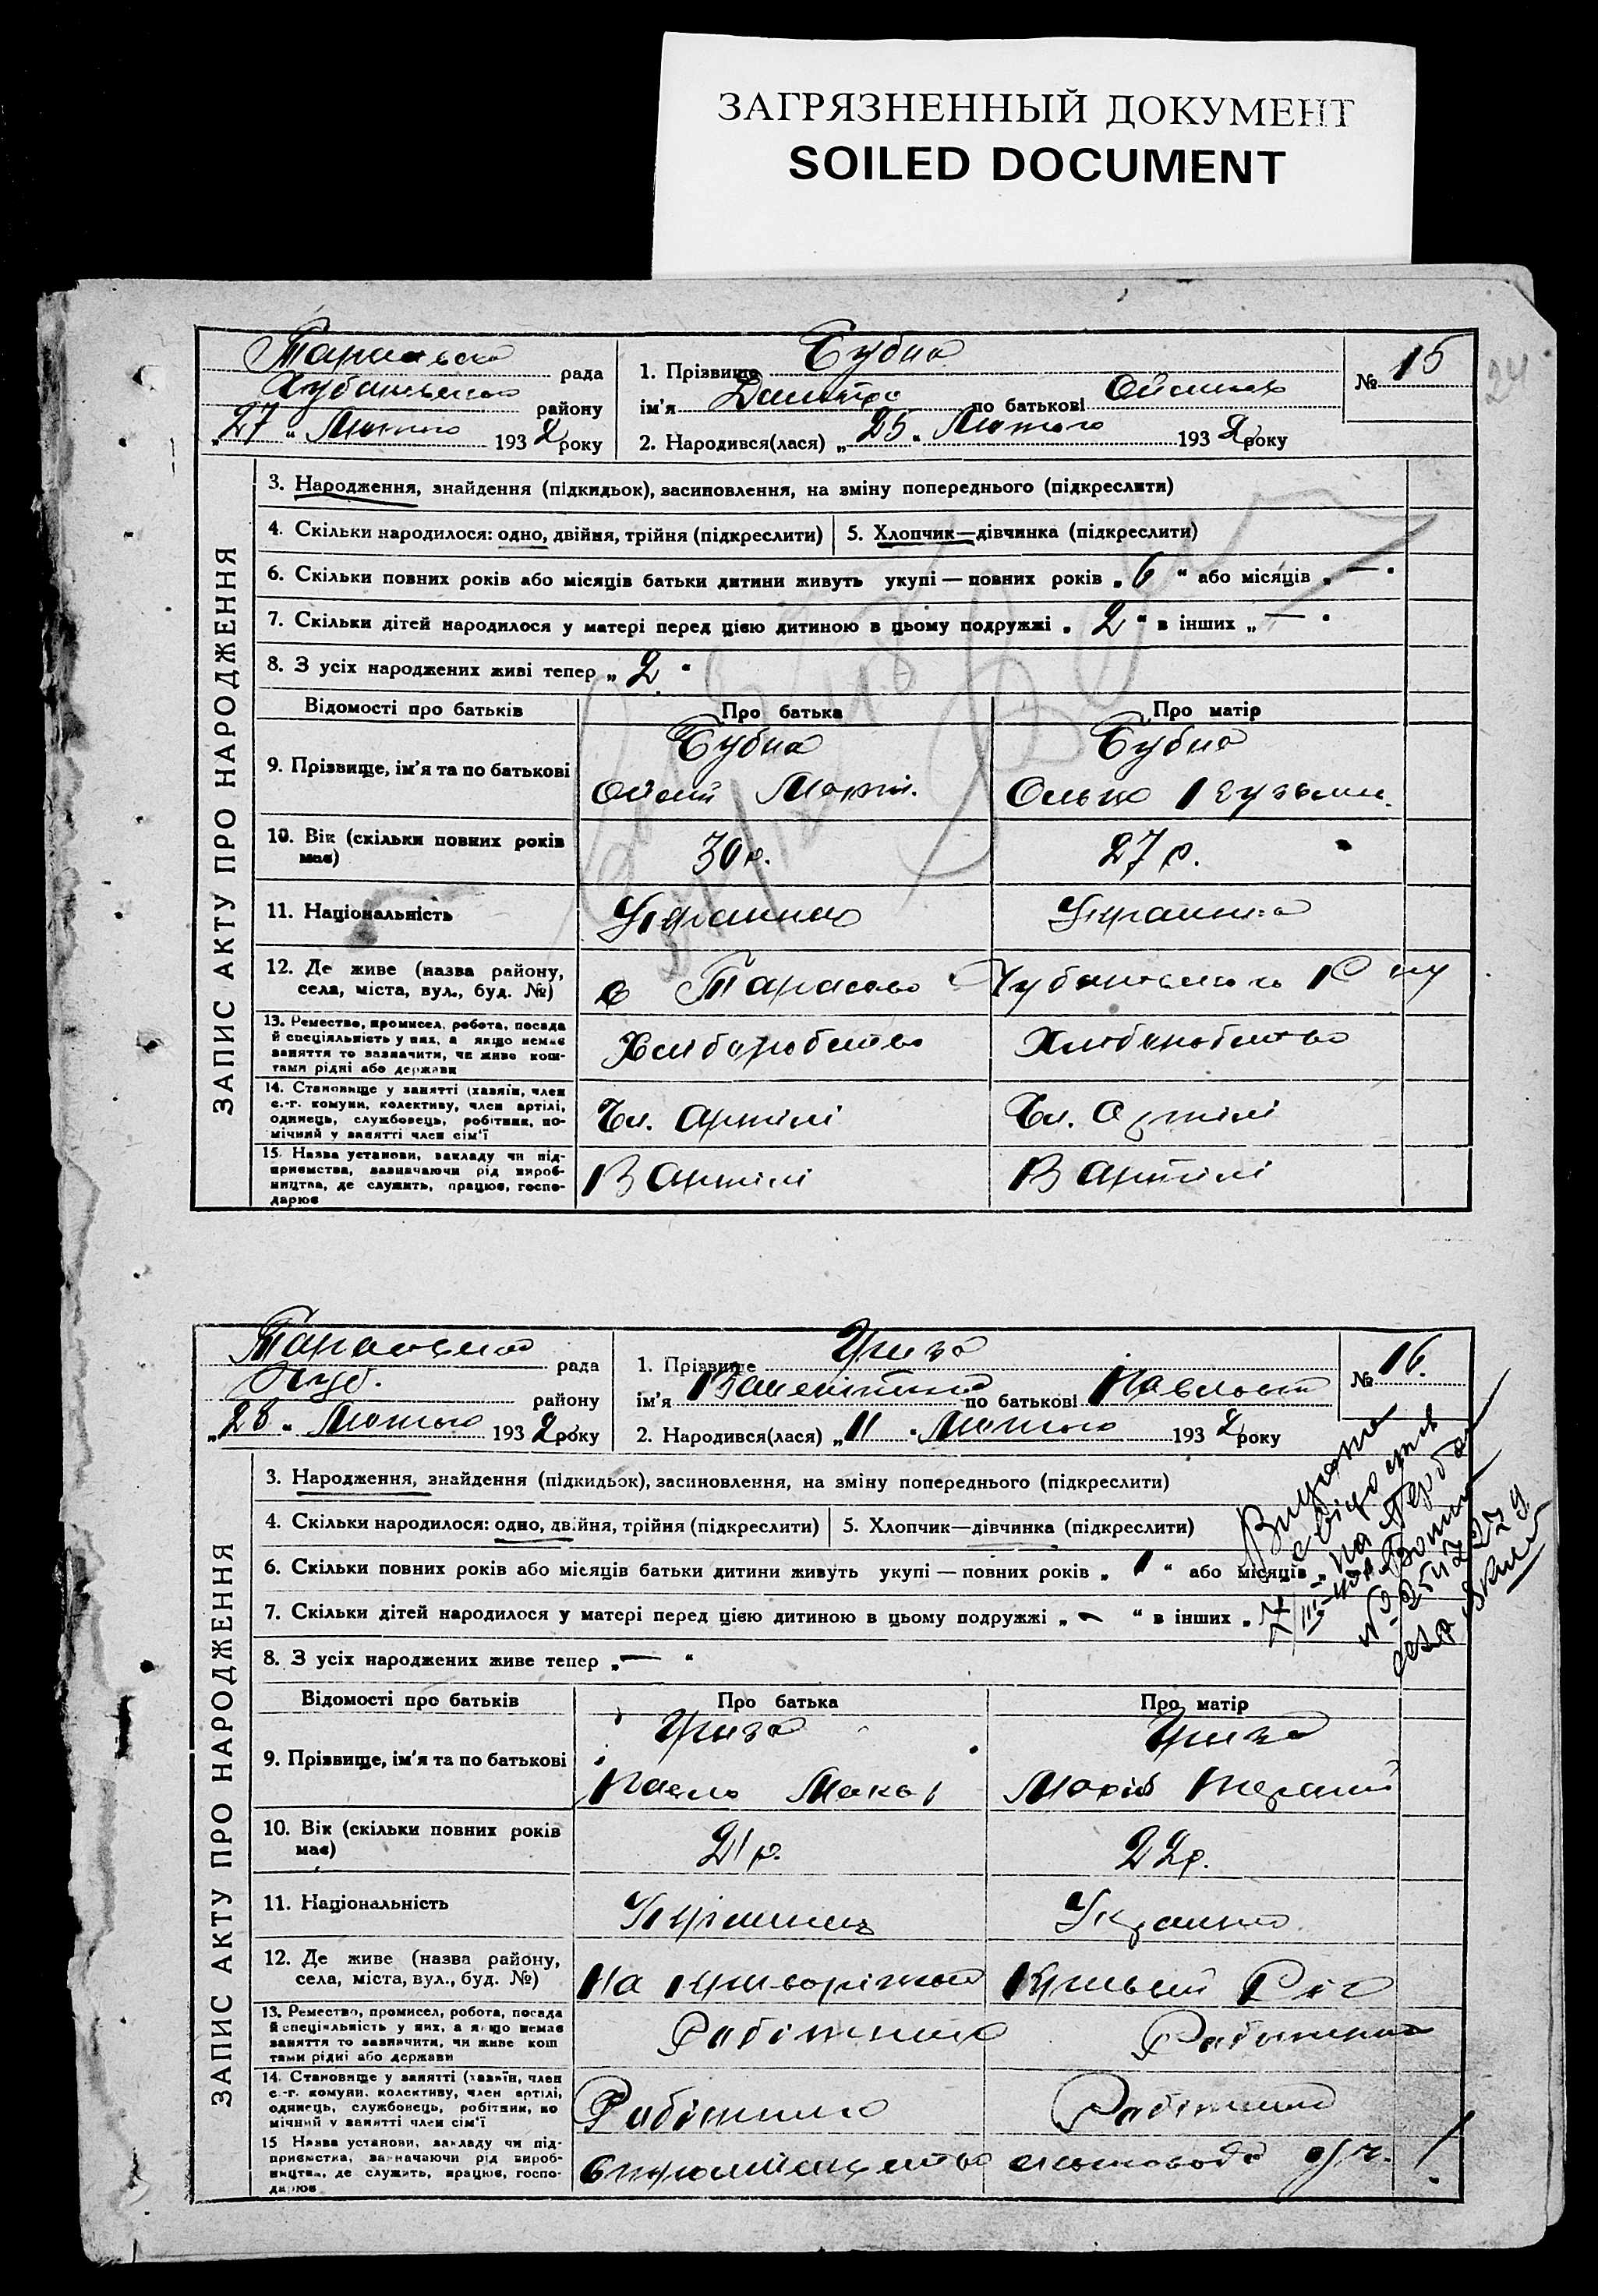 ЗАГРЯЗНЕННЫЙ ДОКУМЕНТ
SOILED DOCUMENT
24
рада
району
„27“ Лютого 1932 року
1. Прізвище Бубна
ім'я Дмитро по батькові
2. Народився(лася) „25“ Лютого 1932 року
№ 15
ЗАПИС АКТУ ПРО НАРОДЖЕННЯ
3. Народження, знайдення (підкидьок), засиновлення, на зміну попереднього (підкреслити)
4. Скільки народилося: одно, двійня, трійня (підкреслити)
5. Хлопчик—дівчинка (підкреслити)
6. Скільки повних років або місяців батьки дитини живуть укупі — повних років „6“ або місяців „—“
7. Скільки дітей народилося у матері перед цією дитиною в цьому подружжі „2“ в інших „—“
8. З усіх народжених живі тепер „2“
Відомості про батьків
Про батька
Про матір
9. Прізвище, ім'я та по батькові
Бубна
Бубна
10. Вік (скільки повних років
має)
30 р.
27 р.
11. Національність
Українець
Українка
12. Де живе (назва району,
села, міста, вул., буд. №)
с Тарасово
13. Ремество, промисел, робота, посада
й спеціяльність у них, а якщо немає
заняття то зазначити, чи живе кош-
тами рідні або держави
Хліборобство
Хліборобство
14. Становище у занятті (хазяїн, член
с.-г. комуни, колективу, член артілі,
одинець, службовець, робітник, по-
мічний у занятті член сім'ї
Чл. Артілі
Чл. Артілі
15. Назва установи, закладу чи під-
приємства, зазначаючи рід вироб-
ництва, де служить, працює, госпо-
дарює
В Артілі
В Артілі
рада
Куб. району
„28“ Лютого 1932 року
1. Прізвище Гриза
ім'я Валентина по батькові Павловна
2. Народився(лася) „11“ Лютого 1932 року
№ 16.
ЗАПИС АКТУ ПРО НАРОДЖЕННЯ
3. Народження, знайдення (підкидьок), засиновлення, на зміну попереднього (підкреслити)
4. Скільки народилося: одно, двійня, трійня (підкреслити)
5. Хлопчик—дівчинка (підкреслити)
6. Скільки повних років або місяців батьки дитини живуть укупі — повних років „1“ або місяців „
7. Скільки дітей народилося у матері перед цією дитиною в цьому подружжі „—“ в інших „
8. З усіх народжених живе тепер „—“
Відомості про батьків
Про батька
Про матір
9. Прізвище, ім'я та по батькові
Гриза
Гриза
Павло Макар
Марія
10. Вік (скільки повних років
має)
21 р.
22 р.
11. Національність
Українець
Українка
12. Де живе (назва району,
села, міста, вул., буд. №)
На
Кривий Ріг
13. Ремество, промисел, робота, посада
й спеціяльність у них, а якщо немає
заняття то зазначити, чи живе кош
тами рідні або держави
Робітник
Робітниця
14. Становище у занятті (хазяїн, член
с.-г. комуни, колективу, член артілі,
одинець, службовець, робітник, по
мічний у занятті член сім'ї
Робітник
Робітниця
15 Назва установи, закладу чи під-
приємства, зазначаючи рід вироб-
ництва, де служить, працює, госпо-
дарює